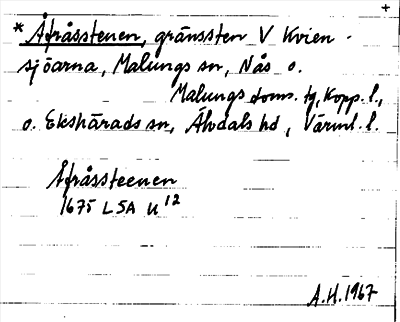 +
* Åfråsstenen, gränssten V Kvien-
sjöarna, Malungs sn, Nås o.
Malungs doms. tg, Kopp. l.,
o. Ekshärads sn, Älvdals hd, Värml. l.
Åfråssteenen
1675 LSA U 12
A.H. 1967